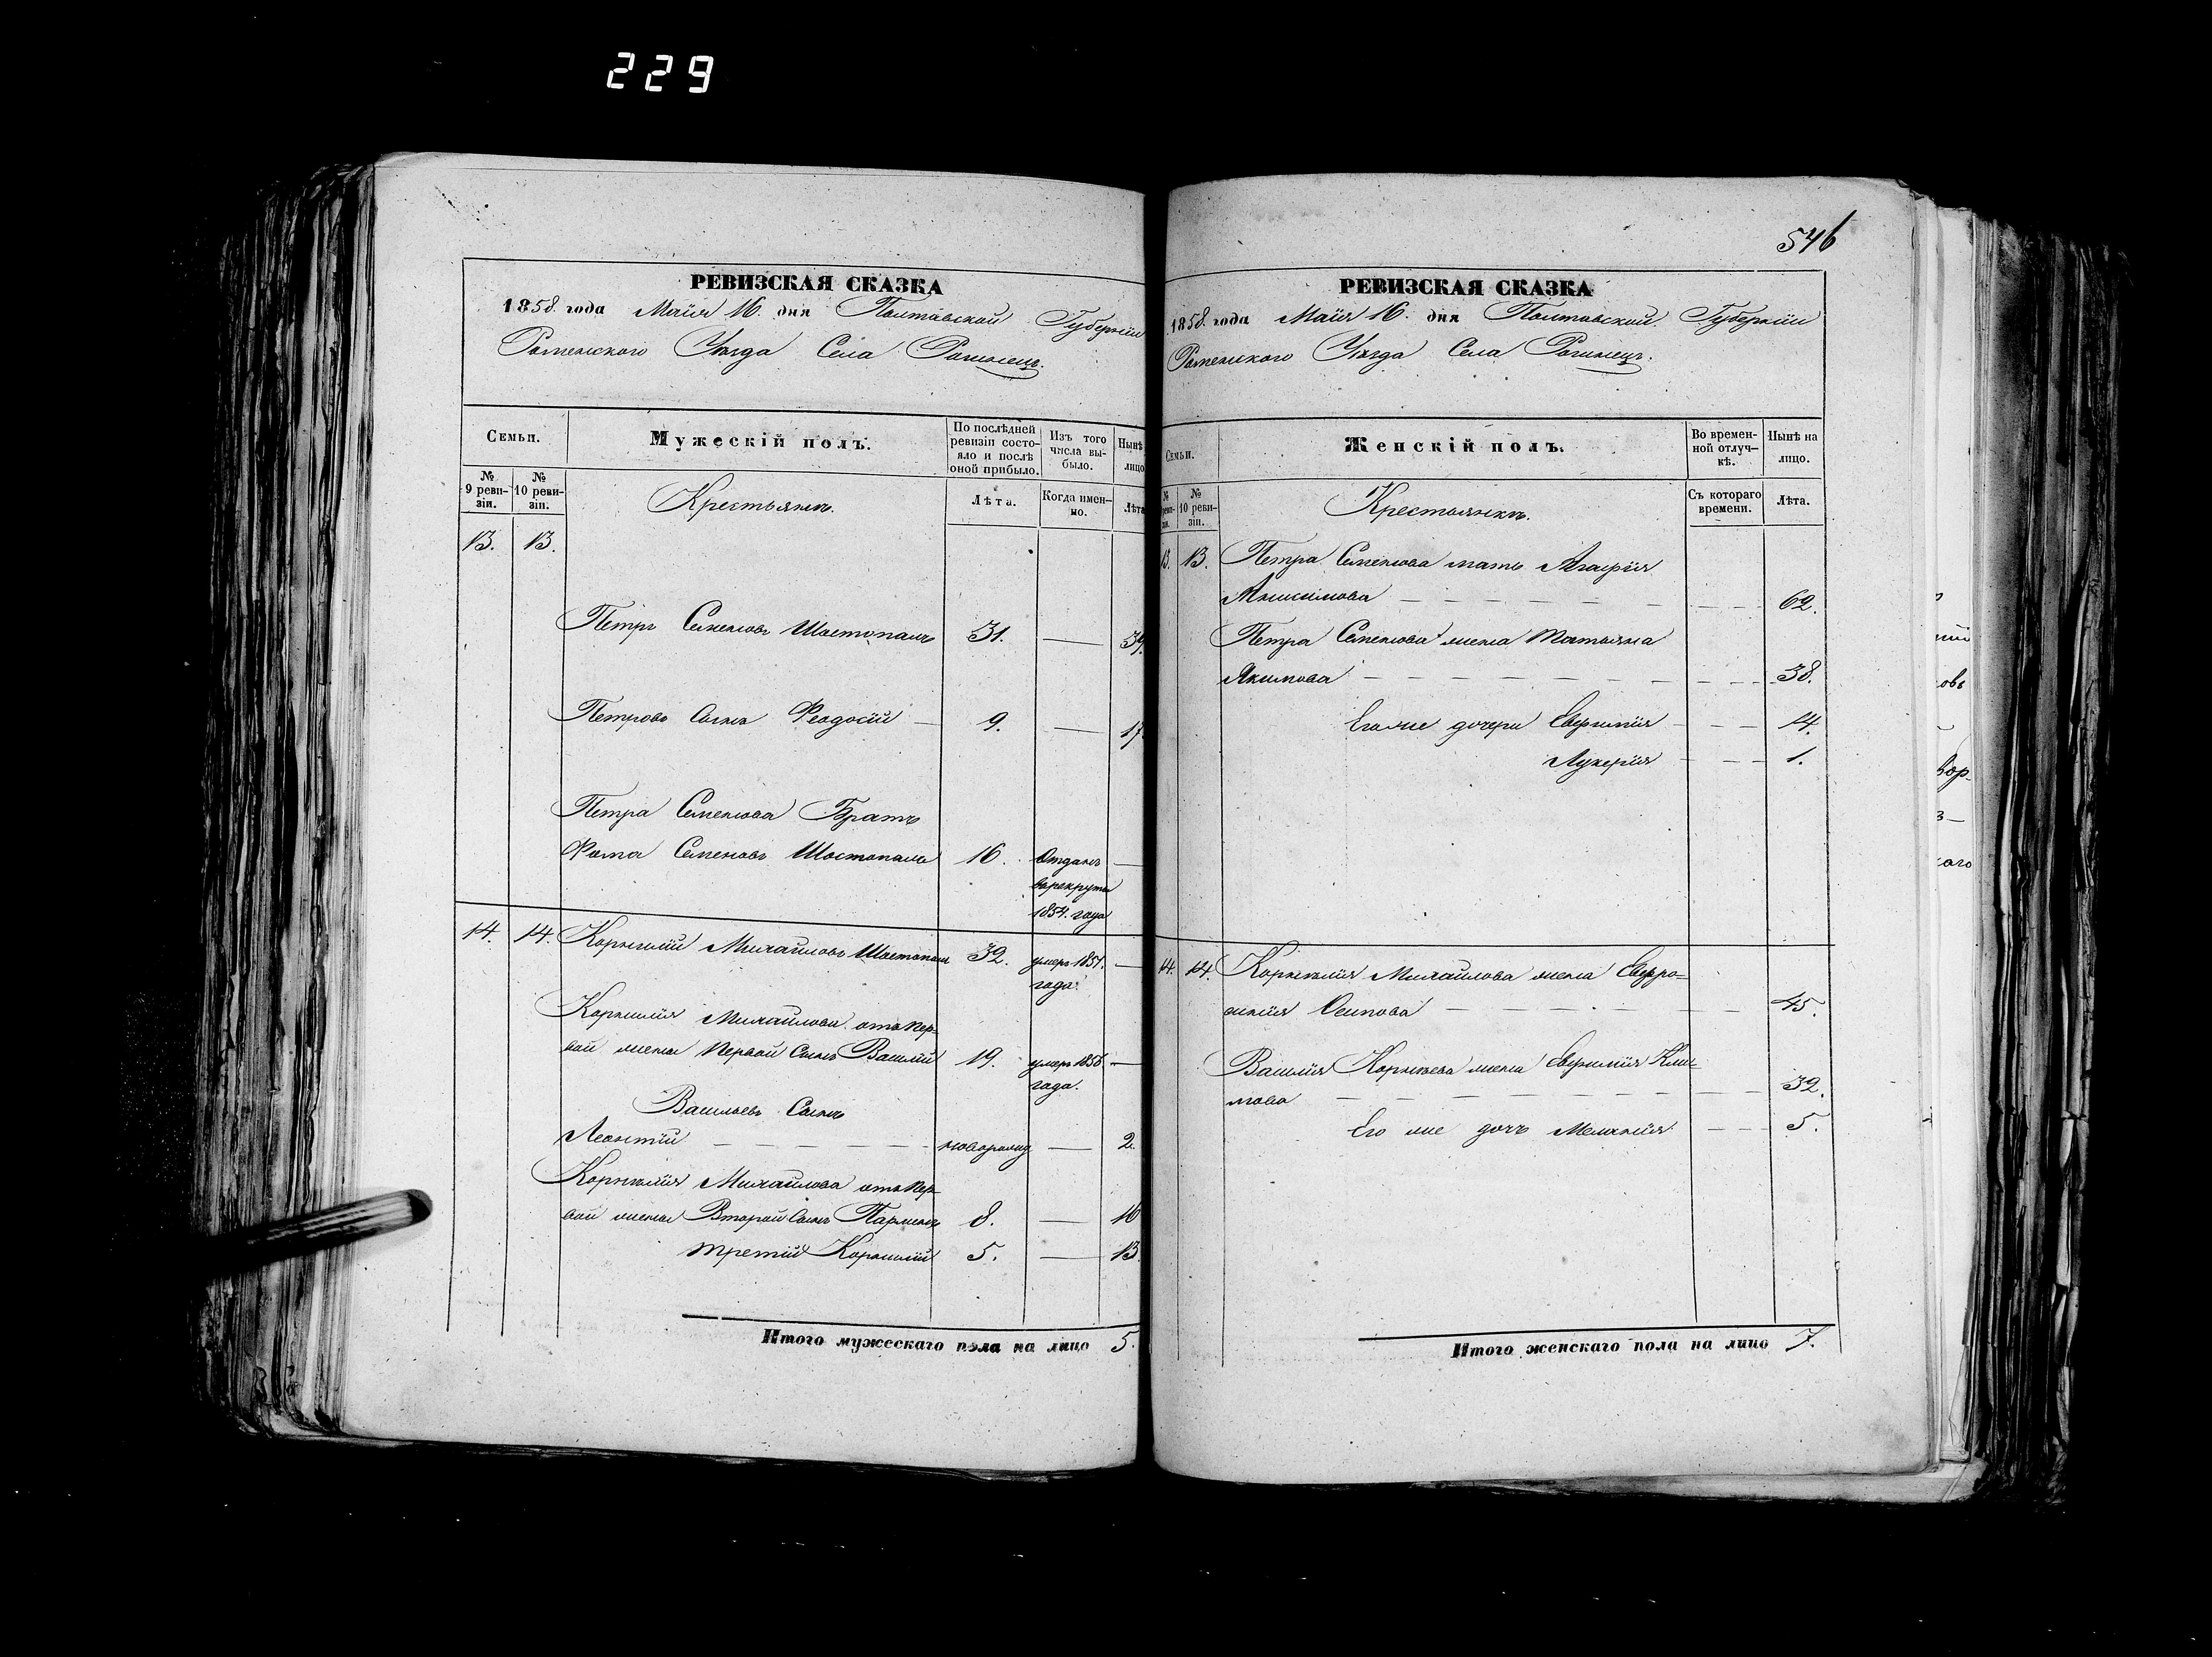 229
546
РЕВИЗСКАЯ СКАЗКА
1858 года Маія 16. дня Полтавской Губерніи
Роменского Уѣзда Села Рогинецъ.
Семьи.
Мужескій полъ.
По послѣдней ревизіи состояло и послѣ оной прибыло.
Изъ того числа выбыло.
Нынѣ лицо
№ 9 ревизіи.
№ 10 ревизіи.
Крестьяне.
Лѣта.
Когда именно.
Лѣта
13. 13.
Петръ Семеновъ Шостопалъ 31. — 39.
Петровъ Сынъ Феодосій — 9. — 17
Петра Семенова Братъ
Фома Семеновъ Шостопалъ 16. Отданъ —
врекруты
1854. года
14. 14. Корнилій Михайловъ Шостопалъ 32. умеръ 1857. —
года.
Корнилія Михайлова отъ пер-
вой жены первой Сынъ Василій 19. умеръ 1856 —
года.
Васильевъ Сынъ
Леонтій — — — — — новорожд — 2.
Корнилія Михайлова отъ пер-
вой жены Второй Сынъ Парменъ 8. — 16
третій Корнилій 5. — 13.
Итого мужескаго пола на лицо 5.
РЕВИЗСКАЯ СКАЗКА
1858 года Маія 16. дня Полтавской Губерніи
Роменского Уѣзда Села Рогинецъ.
Семьи.
Женскій полъ.
Во временной отлучкѣ.
Нынѣ на лицо.
№ реви-зіи.
№ 10 ревизіи.
Крестьянки.
Съ котораго времени.
Лѣта.
13. 13. Петра Семенова мать Агафія
Анисимова — — — — — — — — 62.
Петра Семенова жена Татьяна
Якимова — — — — — — — — 38.
Его же дочери Евфимія — — — 14.
Лукерія — — — 1.
14. 14. Корнилія Михайлова жена Евфро-
синія Осипова — — — — — — 45.
Василія Корнѣева жена Евфимія Кли-
мова — — — — — — — — 32.
Его же дочь Меланія — — 5.
Итого женскаго пола на лицо 7.